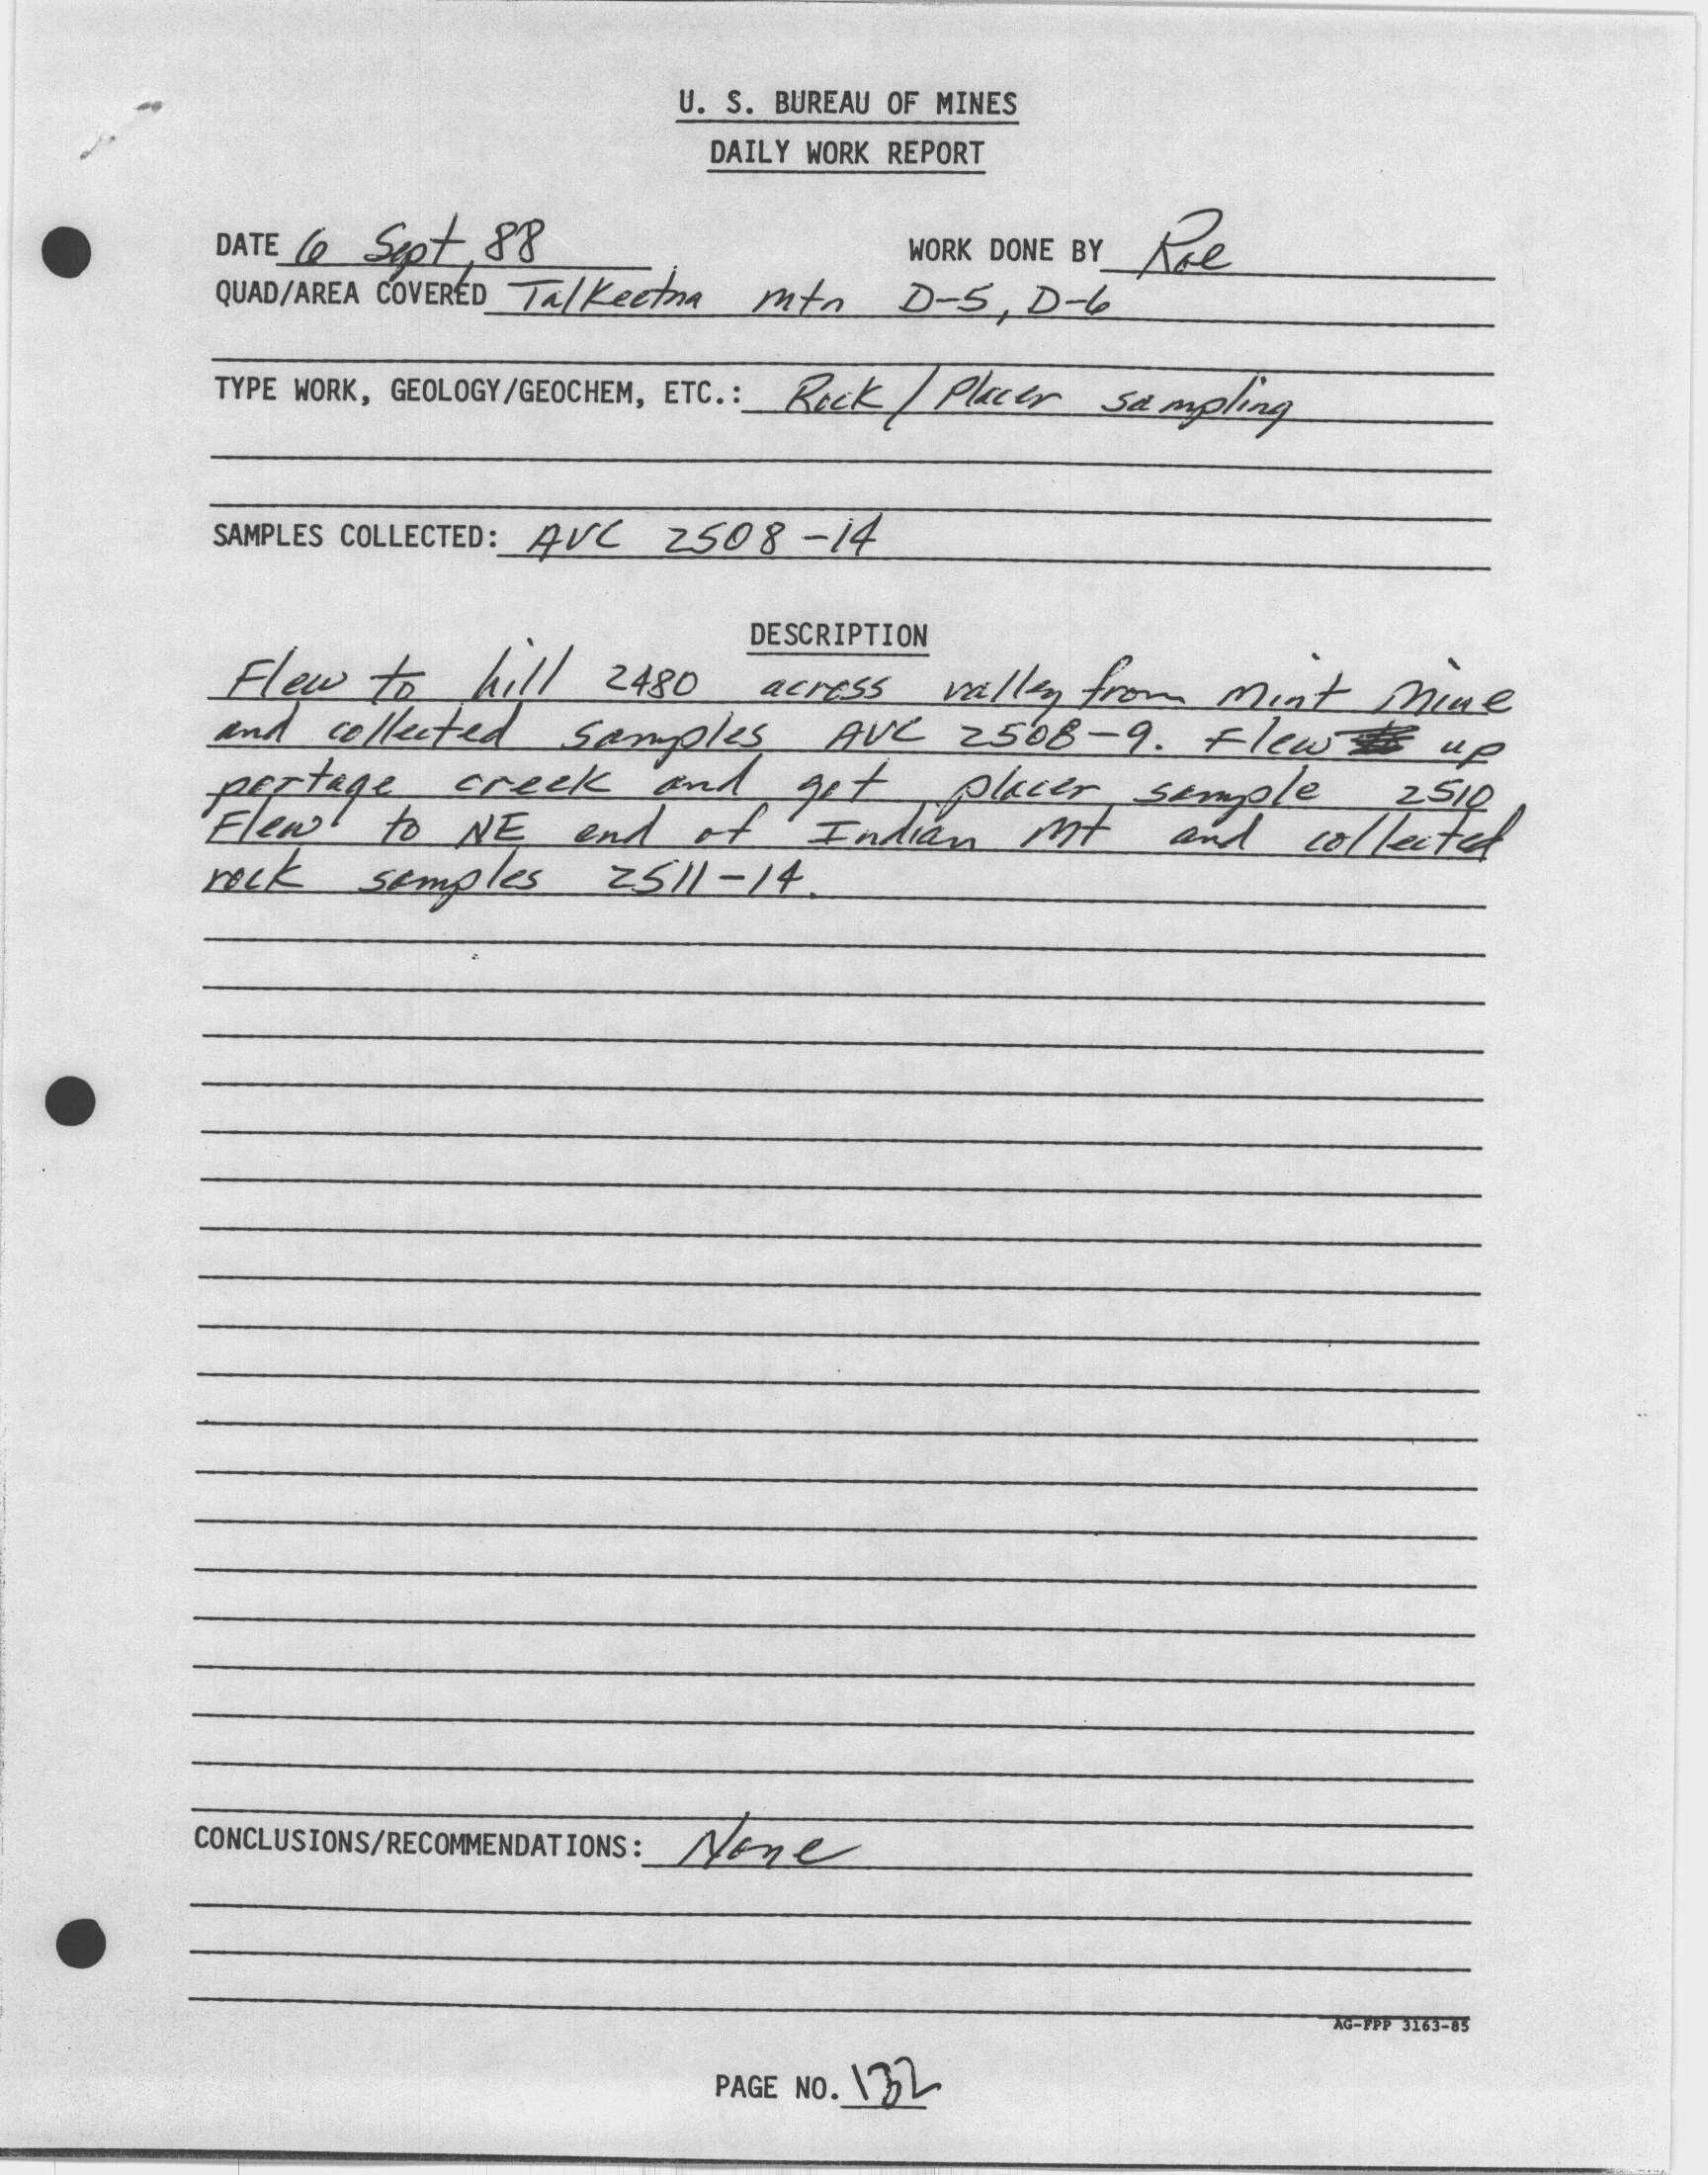 U. S. BUREAU OF MINES
DAILY WORK REPORT
DATE 6 Sept, 88 WORK DONE BY Roe
QUAD/AREA COVERED Talkeetna mtn D-5, D-6
TYPE WORK, GEOLOGY/GEOCHEM, ETC.: Rock / Placer sampling
SAMPLES COLLECTED: AVC 2508-14
DESCRIPTION
Flew to hill 2480 across valley from Mint Mine
and collected samples AVC 2508-9. Flew up
portage creek and got placer sample 2510
Flew to NE end of Indian Mt and collected
rock samples 2511-14.
CONCLUSIONS/RECOMMENDATIONS: None
AG-FPP 3163-85
PAGE NO. 132